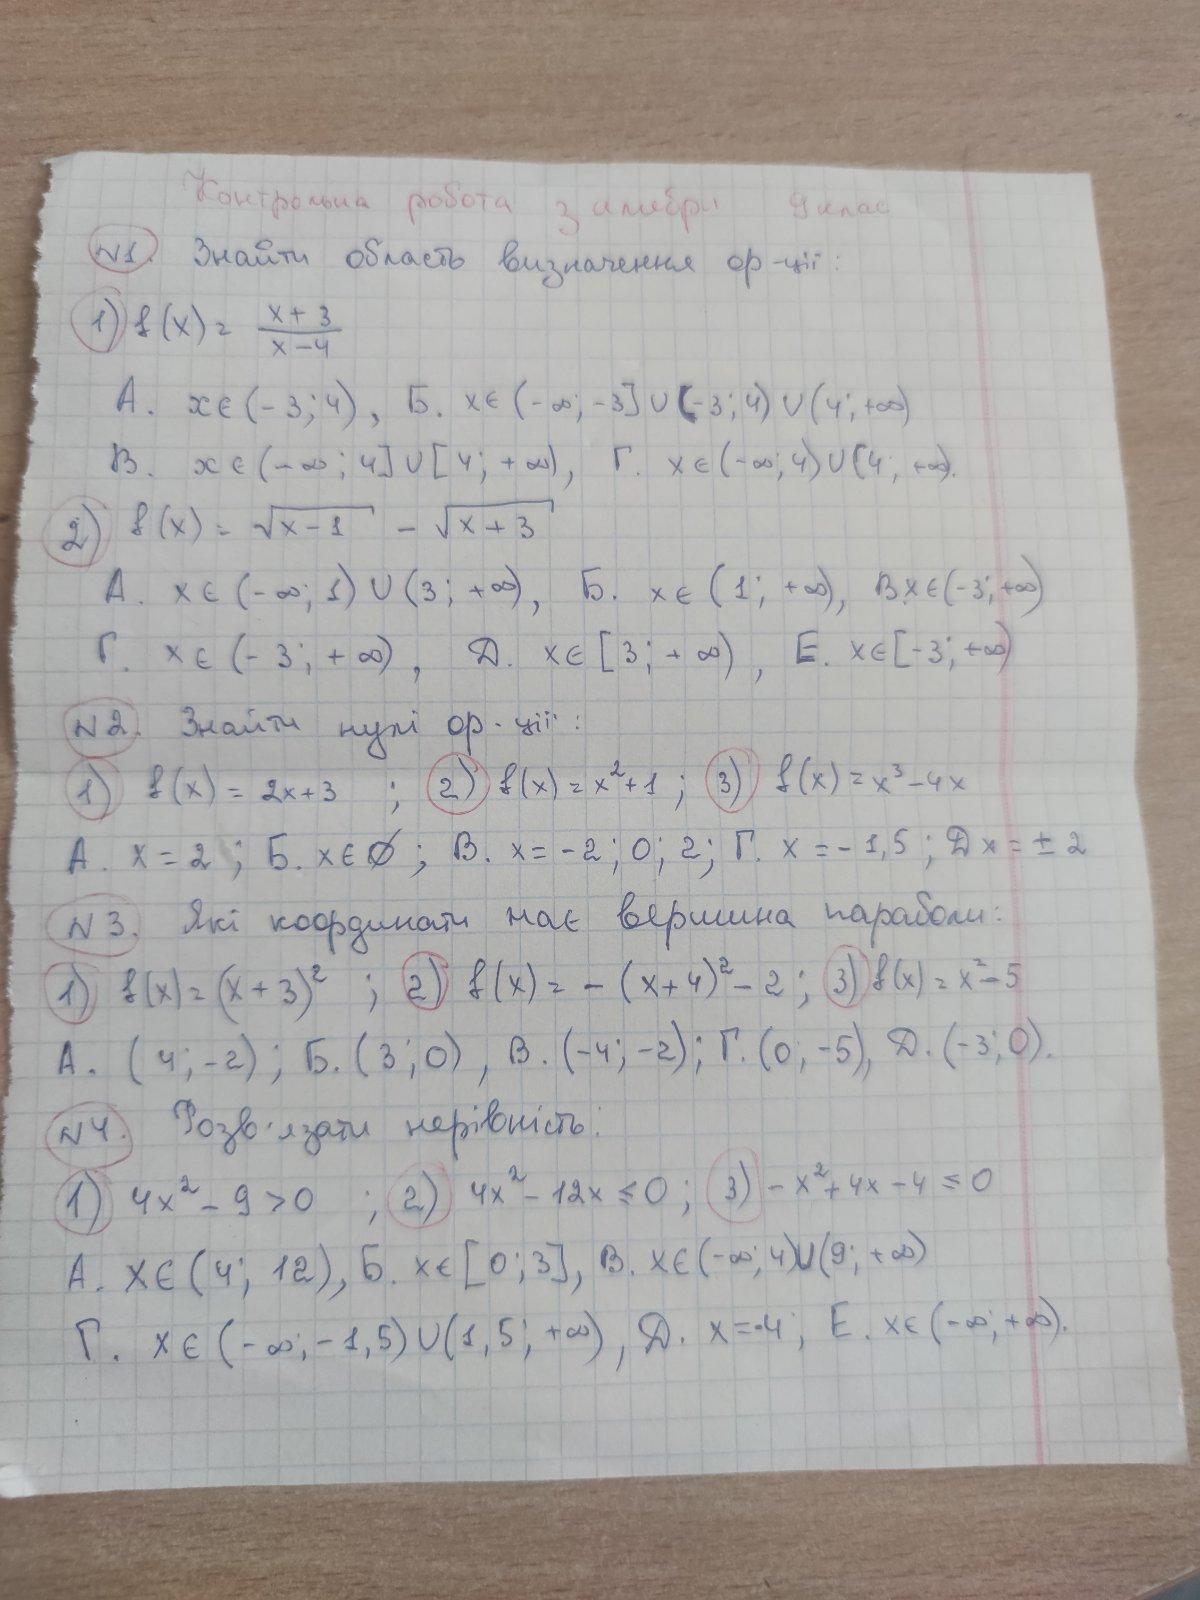 Контрольна робота з алгебри 9 клас
№1. Знайти область визначення ф-ції:
1) f(x) = \frac{x+3}{x-4}
А. x∈(-3;4), Б. x∈(-∞;-3]∪(-3;4)∪(4;+∞)
В. x∈(-∞;4]∪[4;+∞), Г. x∈(-∞;4)∪(4;+∞).
2) f(x) = √(x-1) - √(x+3)
А. x∈(-∞;1)∪(3;+∞), Б. x∈(1;+∞), В. x∈(-3;+∞)
Г. x∈(-3;+∞), Д. x∈[3;+∞), Е. x∈[-3;+∞)
№2. Знайти нулі ф-ції:
1) f(x) = 2x+3 ; 2) f(x) = x²+1 ; 3) f(x) = x³-4x
А. x = 2 ; Б. x∈Ø ; В. x = -2; 0; 2; Г. x = -1,5 ; Д x = ±2
№3. Які координати має вершина параболи:
1) f(x) = (x+3)² ; 2) f(x) = -(x+4)²-2 ; 3) f(x) = x²-5
А. (4;-2) ; Б. (3;0) , В. (-4;-2); Г. (0;-5), Д. (-3;0).
№4. Розв'язати нерівність:
1) 4x²-9>0 ; 2) 4x²-12x≤0 ; 3) -x²+4x-4≤0
А. x∈(4;12), Б. x∈[0;3], В. x∈(-∞;4)∪(9;+∞)
Г. x∈(-∞;-1,5)∪(1,5;+∞), Д. x=-4; Е. x∈(-∞;+∞).